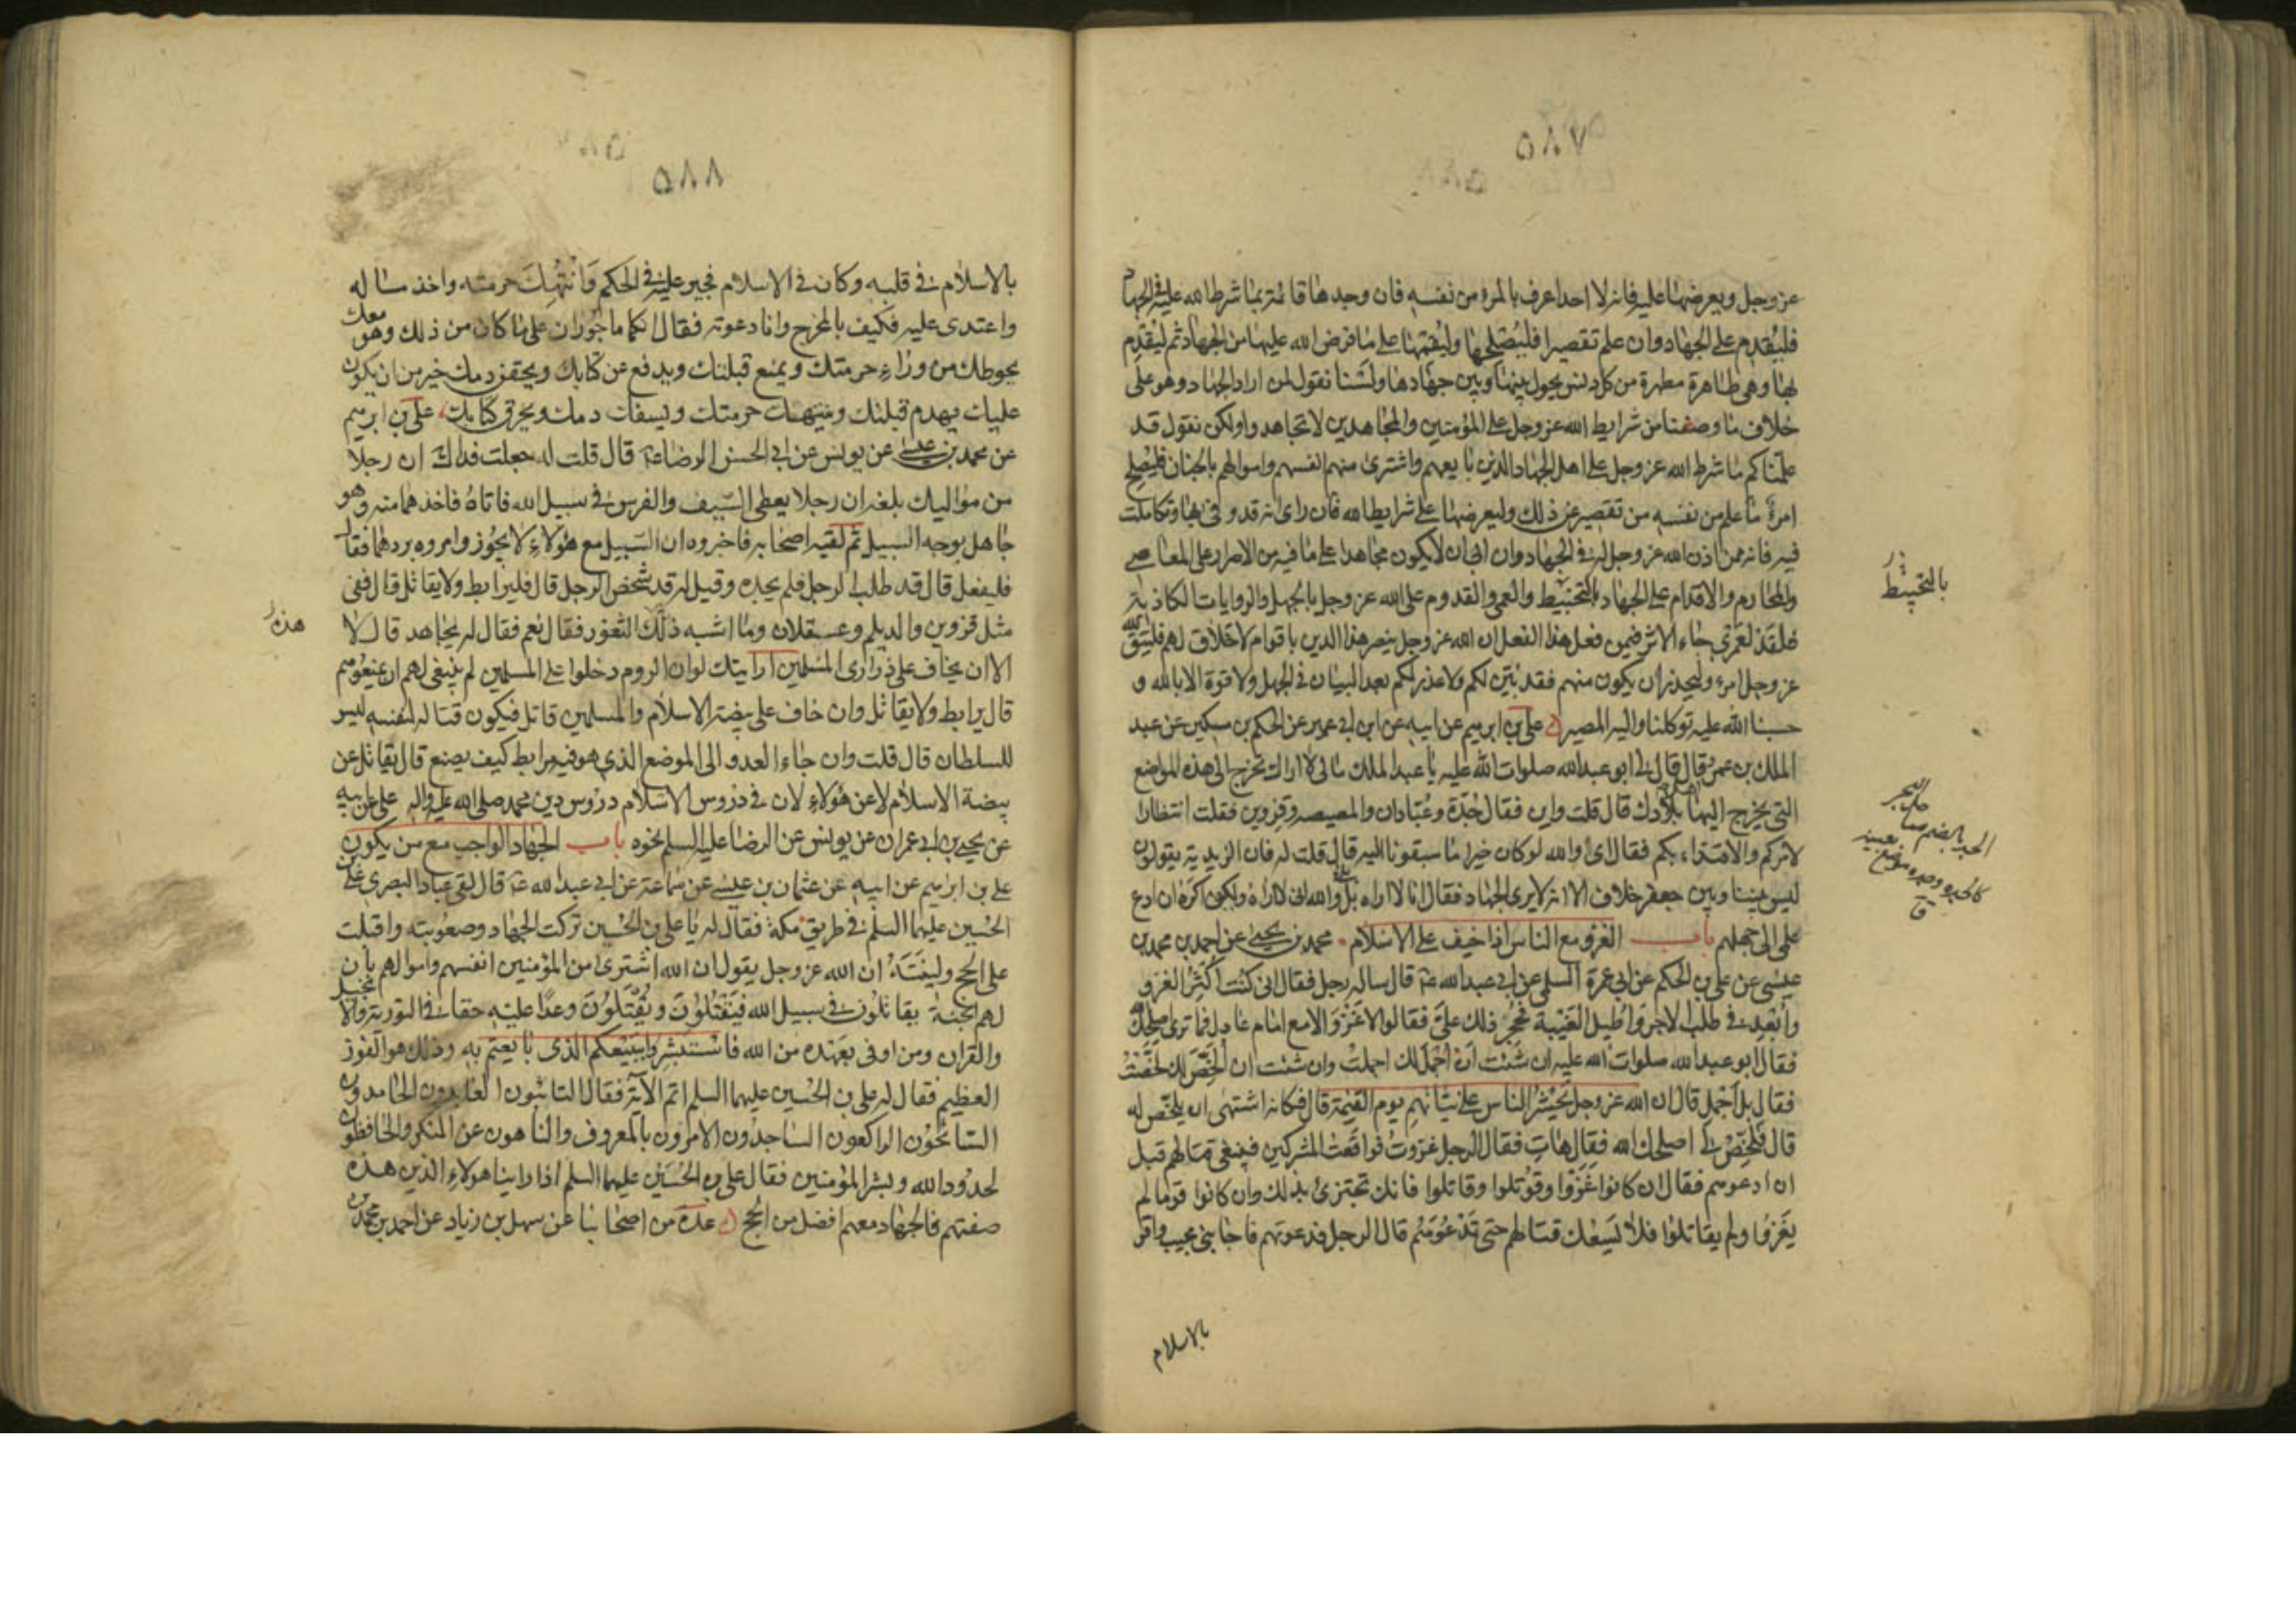 ٥٨٧
عز وجل ويعرضها عليه فانه لا احد اعرف بالمرء من نفسه فان وجدها قائمة بما شرط الله عليه في الجهاد
فليُقدِم على الجهاد وان علم تقصيرا فليُصلحها وليُقمها على ما فرض الله عليها من الجهاد ثم ليُقدِم
بها وهي طاهرة مطهرة من كل دنس يحول بينها وبين جهادها ولَسنا نقول لمن اراد الجهاد وهو على
خلاف ما وصفنا من شرايط الله عز وجل على المؤمنين والمجاهدين لا تجاهدوا ولكن نقول قد
علّمناكم ما شرط الله عز وجل على اهل الجهاد الذين بايعهم واشترى منهم انفسهم واموالهم بالجنان فليُصلح
امرءٌ ما علم من نفسه من تقصير عن ذلك وليعرضها على شرايط الله فان راى انه قد وفى بها وتكاملت
فيه فانه ممن اذن الله عز وجل له في الجهاد وان ابى ان لا يكون مجاهدا على ما فيه من الاصرار على المعاصي
والمحارم والاقدام على الجهاد بالتخبيط والعمى والقدوم على الله عز وجل بالجهل والروايات الكاذبة
فلقد لعَمري جاء الاثر فيمن فعل هذا الفعل ان الله عز وجل ينصر هذا الدين باقوام لا خلاق لهم فليتق الله
عز وجل امرء وليحذر ان يكون منهم فقد بُيّن لكم ولا عذر لكم بعد البيان في الجهل ولا قوة الا بالله و
حسبنا الله عليه توكلنا واليه المصير علي بن ابرهيم عن ابيه عن ابن ابي عمير عن الحكم بن مسكين عن عبد
الملك بن عمرو قال قال لي ابو عبد الله صلوات الله عليه يا عبد الملك مالي لا اراك تخرج الى هذه المواضع
التي يخرج اليها اهل بلادك قال قلت واين فقال جُدّة وعُبّادان والمصيصه وقزوين فقلت انتظارا
لامركم والاقتداء بكم فقال اى والله لو كان خيرا ما سبقونا اليه قال قلت له فان الزيدية يقولون
ليس بيننا وبين جعفر خلاف الا انه لا يرى الجهاد فقال انا لا اراه بلى والله انى لاراه ولكن اكره ان ادع
علمي الى جهلهم باب الغزو مع الناس اذا خيف على الاسلام محمد بن يحيى عن احمد بن محمد بن
عيسى عن علي بن الحكم عن ابي عرة السلمي عن ابي عبد الله ع قال ساله رجل فقال انى كنت اُكثِرُ الغزو
وابعِد في طلب الاجر واُطيل الغَيبة فحُجِرَ ذلك عليّ فقالوا لا غَزوَ الا مع امام عادل فما ترى اصلحك الله
فقال ابو عبد الله صلوات الله عليه ان شئت ان اُجمِلَ لك اجملتُ وان شئت ان اُلخّصَ لك لخّصتُ
فقال بل اَجمل قال ان الله عز وجل يَحشُر الناس على نياتهم يوم القيمة قال فكانه اشتهى ان يلخّص له
قال فلخّصْ لي اصلحك الله فقال هاتِ فقال الرجل غزوتُ فواقعتُ المشركين فينبغي قتالهم قبل
ان ادعوهم فقال ان كانوا غَزَوا وقُوتلوا وقاتلوا فانك تجتزئ بذلك وان كانوا قوما لم
يَغزُوا ولم يقاتلوا فلا يَسَعُك قتالهم حتى تَدعُوَهُم قال الرجل فدعوتهم فاجابنى مجيب واقر
بالاسلام
بالتخبيط
٥٨٨
بالاسلام في قلبه وكان في الاسلام فجير عليه في الحكم وَانتُهِكَت حرمته واخذ ماله
واعتدى عليه فكيف بالمخرج وانا دعوته فقال انكما ماجُوران على ما كان من ذلك وهو معك
يحوطك من وراء حرمتك ويمنع قبلتك ويدفع عن كتابك ويحقن دمك خير من ان يكون
عليك يهدم قبلتك وينتهك حرمتك ويسفك دمك ويحرق كتابك علي بن ابرهيم
عن محمد بن عيسى عن يونس عن ابي الحسن الرضا ع قال قلت له جعلت فداك ان رجلا
من مواليك بلغه ان رجلا يعطى السيف والفرس في سبيل الله فاتاهُ فاخذهما منه وهو
جاهل بوجه السبيل ثم لقيه اصحابه فاخبروه ان السبيل مع هؤلاء لا يجوز وامروه بردهما فقال
فليفعل قال قد طلب الرجل فلم يجده وقيل له قد شخص الرجل قال فليرابط ولا يقاتل قال ففي
مثل قزوين والديلم وعسقلان وما اشبه ذلك الثغور فقال نعم فقال له يجاهد قال لا
هذه
الا ان يخاف على ذرارى المسلمين ارايتك لو ان الروم دخلوا على المسلمين لم ينبغى لهم ان يمنعوهم
قال يرابط ولا يقاتل وان خاف على بيضة الاسلام والمسلمين قاتل فيكون قتاله لنفسه ليس
للسلطان قال قلت وان جاء العدو الى الموضع الذي هو فيه مرابط كيف يصنع قال يقاتل عن
بيضة الاسلام لا عن هؤلاء لان في دروس الاسلام دروس دين محمد صلى الله عليه واله علي عن ابيه
عن يحيى بن ابي عمران عن يونس عن الرضا عليه السلم نحوه باب الجهاد الواجب مع من يكون
علي بن ابرهيم عن ابيه عن عثمان بن عيسى عن سماعة عن ابي عبد الله ع قال لقى عباد البصرى علي بن
الحسين عليهما السلم في طريق مكة فقال له يا علي بن الحسين تركت الجهاد وصعوبته واقبلت
على الحج ولينته ان الله عز وجل يقول ان الله اشترى من المؤمنين انفسهم واموالهم بان
لهم الجنة يقاتلون في سبيل الله فيَقتُلُونَ ويُقتَلُونَ وعدًا عليه حقا في التورية والانجيل
والقران ومن اوفى بعهده من الله فاستبشروا ببيعكم الذي بايعتم به وذلك هو الفوز
العظيم فقال له علي بن الحسين عليهما السلم اتم الآية فقال التائبون العابدون الحامدون
السائحون الراكعون الساجدون الامرون بالمعروف والناهون عن المنكر والحافظون
لحدود الله وبشر المؤمنين فقال علي بن الحسين عليهما السلم اذا راينا هؤلاء الذين هذه
صفتهم فالجهاد معهم افضل من الحج عدة من اصحابنا عن سهل بن زياد عن احمد بن محمد بن